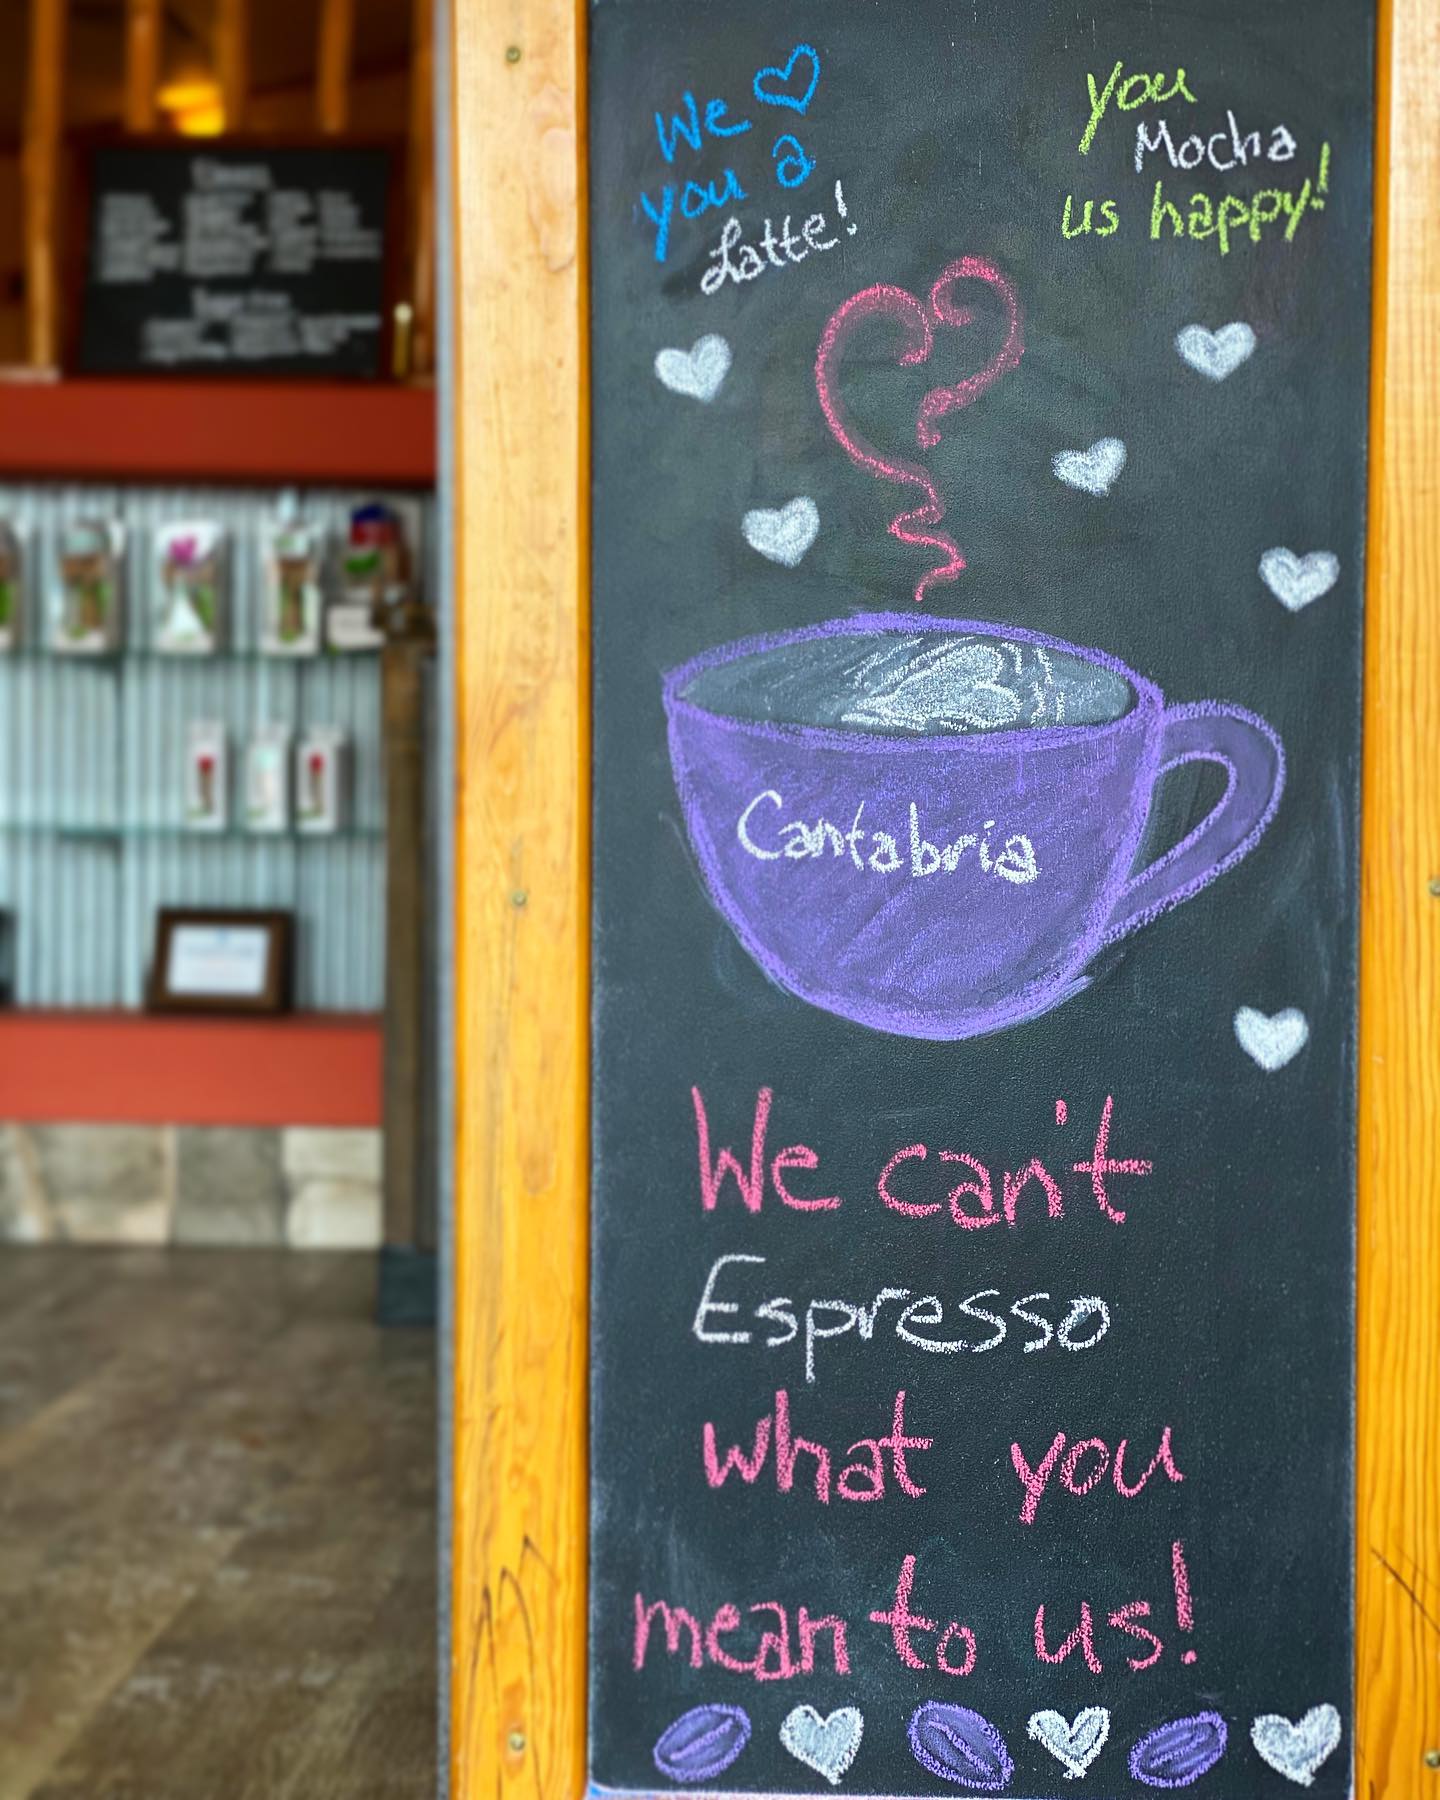 We ♡
you a
Latte!
you
Mocha
us happy!
Cantabria
We can't
Espresso
what you
mean to us!